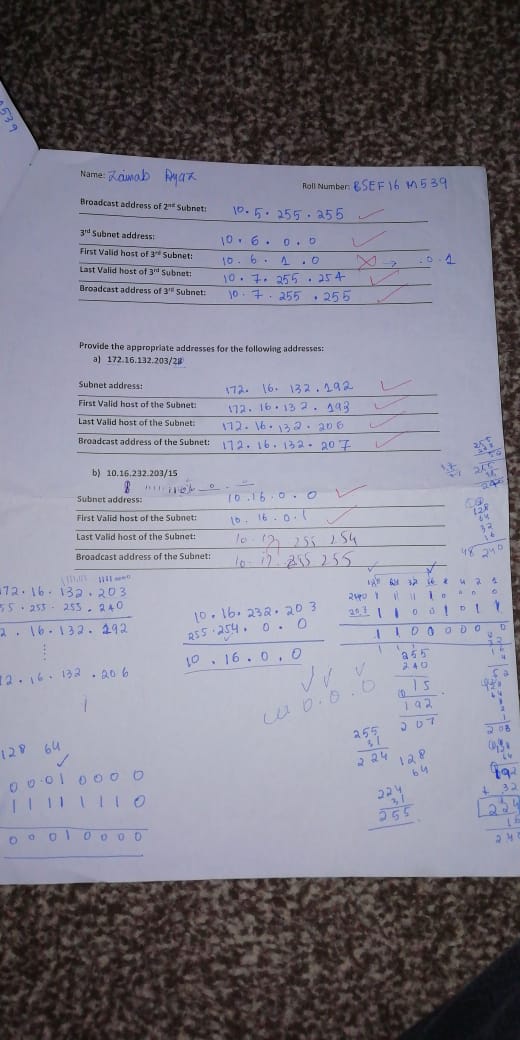 539
Name: Zainab Ayaz
Roll Number: BSEF16 M539
Broadcast address of 2nd Subnet: 10.5.255.255
3rd Subnet address: 10.6.0.0
First Valid host of 3rd Subnet: 10.6.1.0 → .0.1
Last Valid host of 3rd Subnet: 10.7.255.254
Broadcast address of 3rd Subnet: 10.7.255.255
Provide the appropriate addresses for the following addresses:
a) 172.16.132.203/28
Subnet address: 172.16.132.192
First Valid host of the Subnet: 172.16.132.193
Last Valid host of the Subnet: 172.16.132.206
Broadcast address of the Subnet: 172.16.132.207
b) 10.16.232.203/15
Subnet address: 10.16.0.0
First Valid host of the Subnet: 10.16.0.1
Last Valid host of the Subnet: 10.17.255 254
Broadcast address of the Subnet: 10.17.255 255
72.16.132.203
55.255.255.240
2.16.132.192
12.16.132.206
128 64
0 0 0 1 0 0 0 0
1 1 1 1 1 1 1 0
0 0 0 1 0 0 0 0
10.16.232.203
255.254.0.0
10.16.0.0
128 64 32 16 8 4 2 1
240 1 1 1 1 0 0 0 0
207 1 1 0 0 1 0 1 1
1 1 0 0 0 0 0 0
255
240
15
192
207
255
31
224
128
64
224
31
255
128
64
32
16
48 240
208
192
+ 32
224
16
240